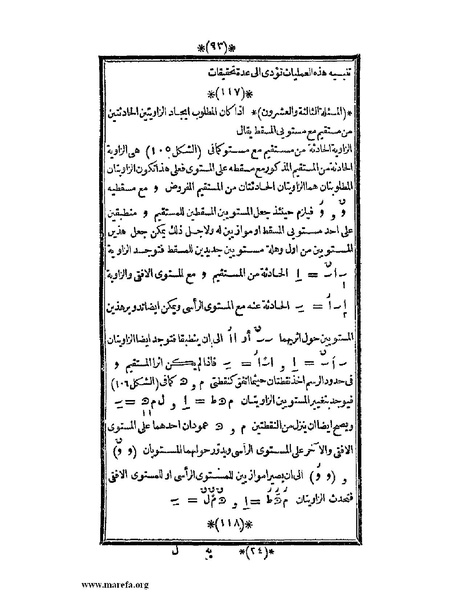 *(٩٣)*
تنبيه هذه العمليات تؤدى الى عدة تحقيقات
*(١١٧)*
*(المسئلة الثالثة والعشرون)* اذا كان المطلوب ايجاد الزاويتين الحادثتين
من مستقيم مع مستويى المسقط يقال
الزاوية الحادثة من مستقيم مع مستو كما فى (الشكل ١٠٥) هى الزاوية
الحادثة من المستقيم المذكور مع مسقطه على المستوى فعلى هذا تكون الزاويتان
المطلوبتان هما الزاويتان الحادثتان من المستقيم المفروض و مع مسقطيه
فيلزم حينئذ جعل المستويين المسقطين للمستقيم و منطبقين
على احد مستويى المسقط او موازيين له ولاجل ذلك يمكن جعل هذين
المستويين من اول وهلة مستويين جديدين للمسقط فتوجد الزاوية
الحادثة من المستقيم و مع المستوى الافقى والزاوية
الحادثة عنه مع المستوى الرأسى ويمكن ايضا تدوير هذين
المستويين حول اثريهما أو الى ان ينطبقا فتوجد ايضا الزاويتان
فاذا لم يمكن اثرا المستقيم و
فى حدود الرسم اخذ نقطتان حيثما اتفق كنقطتى م و ھ كما فى (الشكل ١٠٦)
فيوجد بتغيير المستويين الزاويتان
ويصح ايضا ان ينزل من النقطتين م و ھ عمودان احدهما على المستوى
الافقى والآخر على المستوى الرأسى ويدور حولهما المستويان
الى ان يصيرا موازيين للمستوى الرأسى او للمستوى الافقى
فتحدث الزاويتان
*(١١٨)*
*(٢٤)* يه ل
www.marefa.org